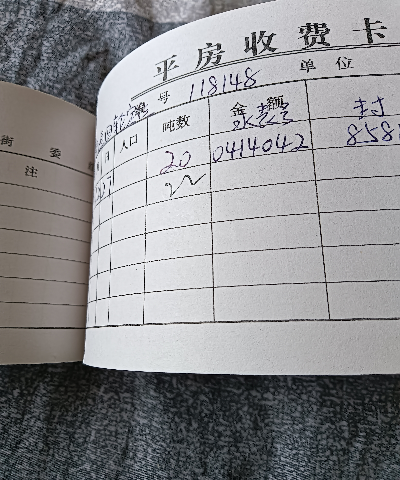 平房收费卡
号 118148 单位
街委
注
月 日 人口 吨数 金额
水表号 封
20 0414042 858
22